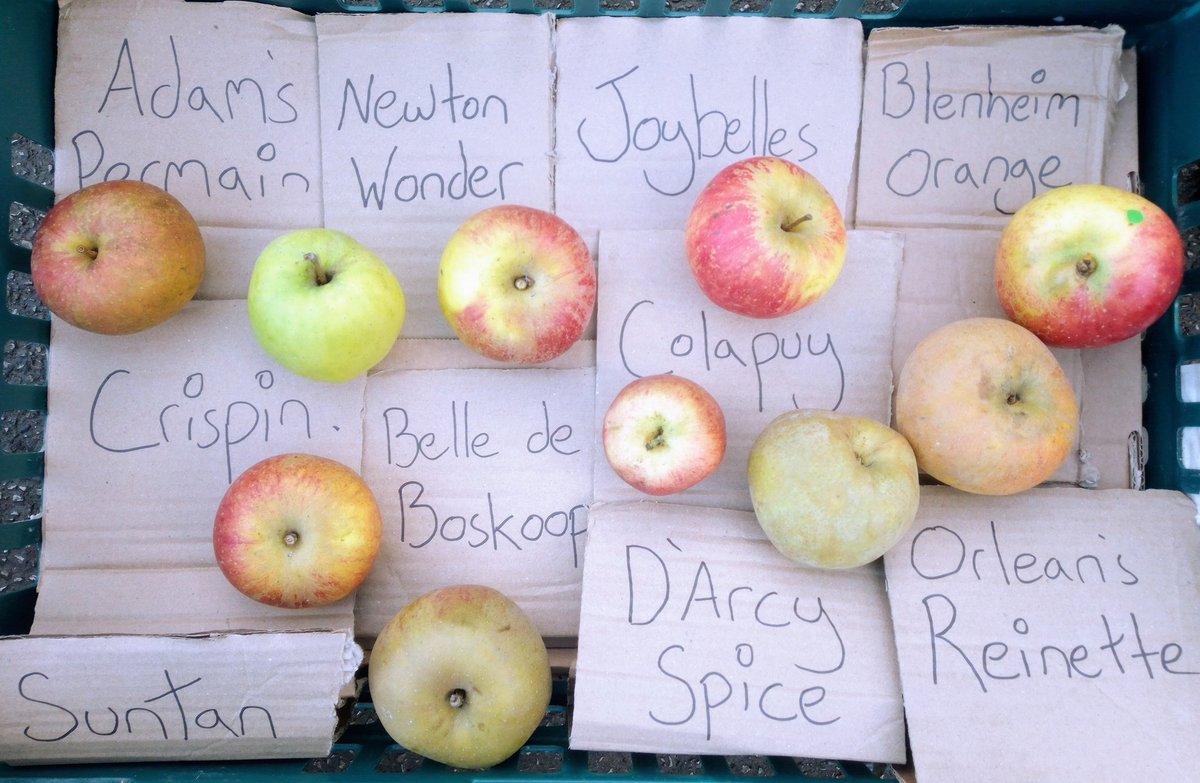 Adam's
Permain
Newton
Wonder
Joybelles
Blenheim
Orange
Crispin.
Belle de
Boskoop
Colapuy
D'Arcy
Spice
Orlean's
Reinette
Suntan